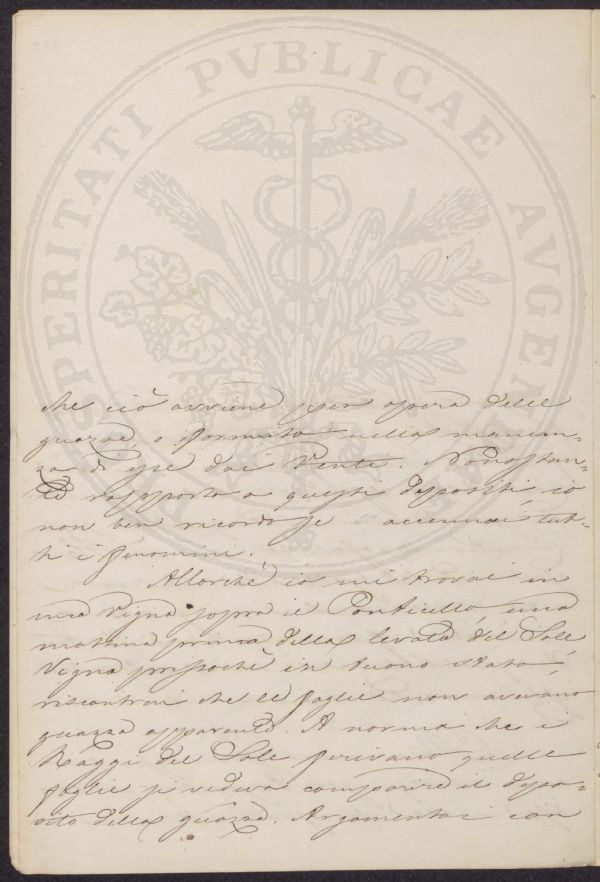 PROSPERITATI PVBLICAE AVGENDAE
che ciò avviene per opera delle
guazze, o formato nella mancan-
za di esse dai Venti. Nonostan-
te rapporto a questi depositi io
non ben ricordo se accennai tut-
ti i fenomini.
Allorchè io mi trovai in
una Vigna sopra il Ponticello, una
mattina prima della levata del Sole
Vigna pressochè in buono stato,
riscontrai che le foglie non avevano
guazza apparente. A norma che i
Raggi del Sole ferivano quelle
foglie si vedeva comparire il depo-
sito della guazza. Argomentai con